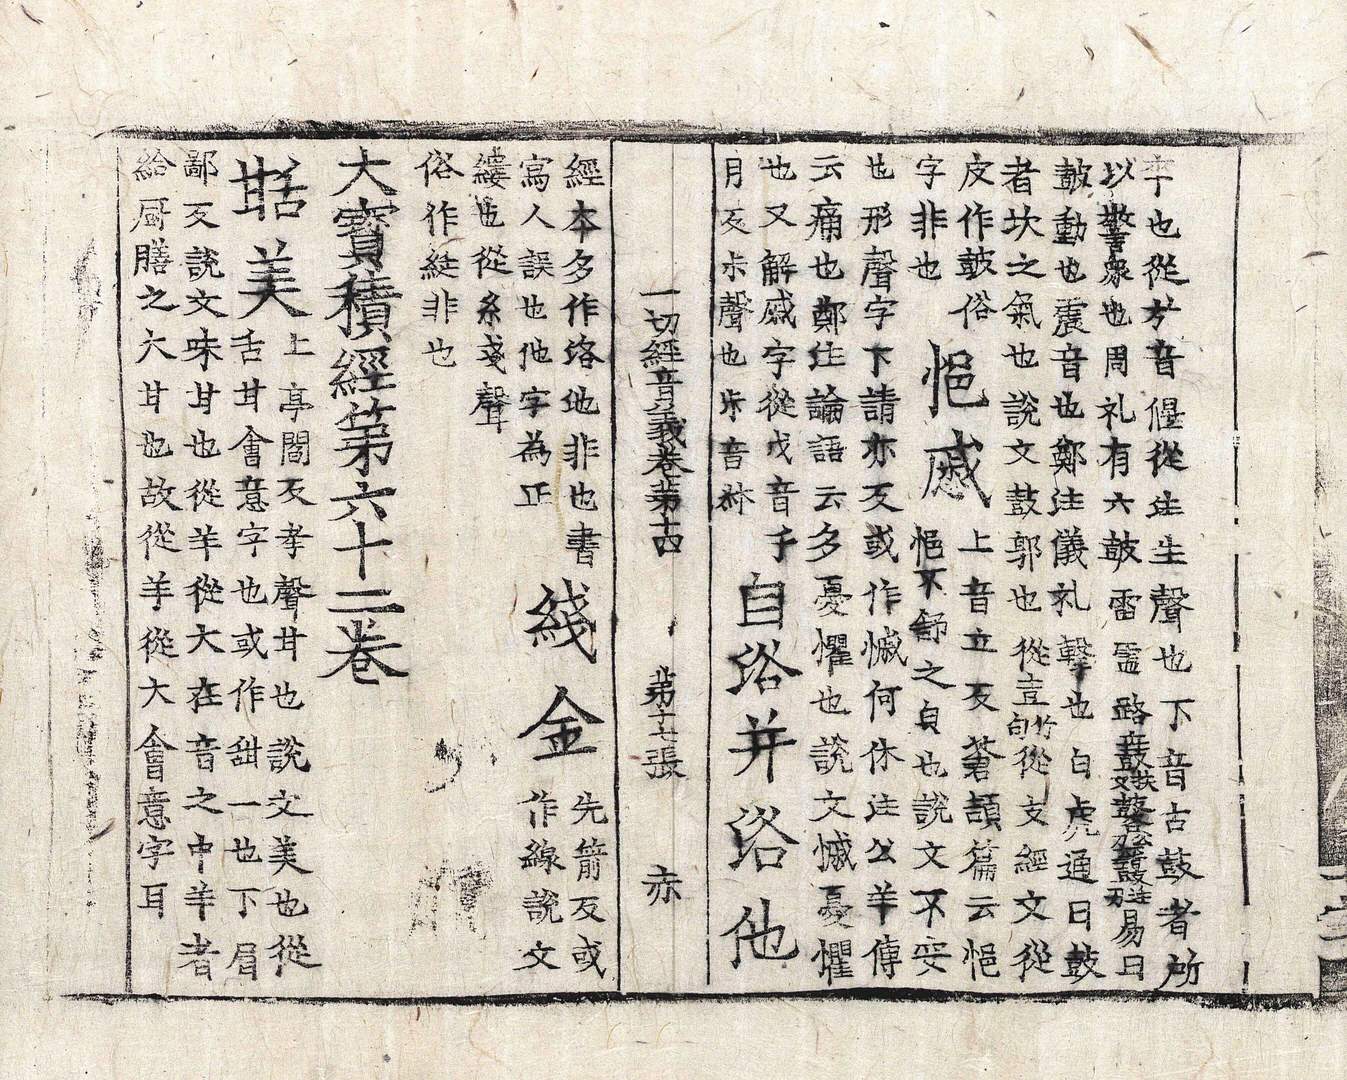 也從㫃音偃從生生聲也下音古鼓者所
以警衆也周礼有六鼓雷靈路鼓 易曰
鼓動也震音也鄭注儀礼擊也白虎通曰鼓
者坎之氣也說文鼓郭也從壴 從支經文從
皮作皷俗
字非也
悒慼
上音立反蒼頡篇云悒
悒不舒之皃也說文不安
也形聲字下請亦反或作慽何休注公羊傳
云痛也鄭注論語云多憂懼也說文慽憂懼
也又解慼字從戊音手
月反尗聲也尗音
自洛并洛他
一切經音義卷第十四 第十七張 赤
經本多作洛也非也書
寫人誤也他字為正
綫金
先箭反或
作線說文
縷也從糸戔聲
俗作綖非也
大寶積經第六十二卷
甛美
上亭閻反孝聲甘也說文美也從
舌甘會意字也或作甜一也下眉
鄙反說文味甘也從羊從大在音之中羊者
給厨膳之大甘也故從羊從大會意字耳